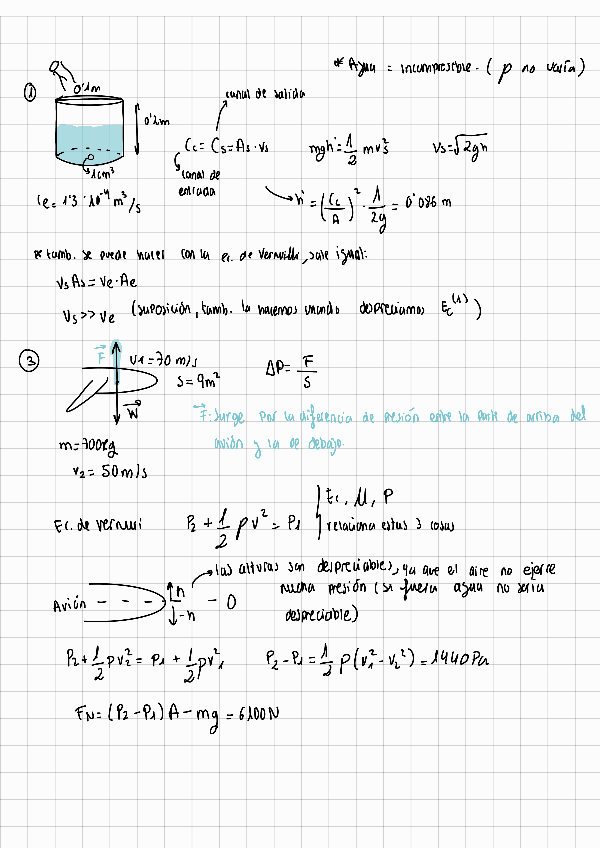 * Agua = incompresible. (ρ no varía)
①
0'1m
0'2m
1cm³
Ce = 1'3 · 10⁻⁴ m³/s
canal de salida
Ce = Cs = As · vs
canal de entrada
mgh = 1/2 mvs²
vs = √2gh
→ h = (Ce/A)² · 1/2g = 0'086 m
* tamb. se puede hacer con la ec. de Vernuilli, sale igual:
vs As = ve · Ae
vs >> ve (suposición, tamb. la hacemos cuando despreciamos Ec⁽¹⁾)
③
F
v1 = 70 m/s
S = 9m²
W
m = 700kg
v2 = 50 m/s
ΔP = F/S
F: surge por la diferencia de presión entre la parte de arriba del
avión y la de debajo.
Ec. de vernuri
P2 + 1/2 ρv² = P1
Ec, U, P
relaciona estas 3 cosas
Avión
h
-h
- 0
→ las alturas son despreciables, ya que el aire no ejerce
mucha presión (si fuera agua no sería
despreciable)
P2 + 1/2 ρv2² = P1 + 1/2 ρv²1
P2 - P1 = 1/2 ρ(v1² - v2²) = 1440 Pa
FN = (P2 - P1) A - mg = 6100 N